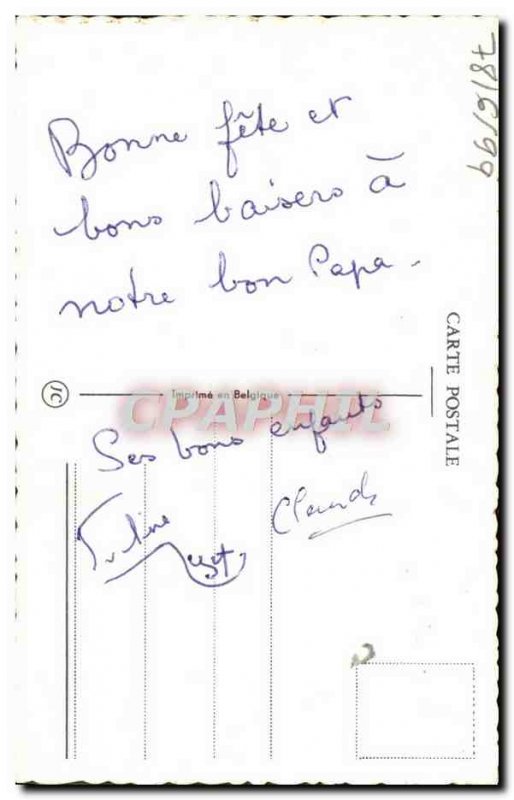 Bonne fête et
bons baisers à
notre bon Papa.
CARTE POSTALE
1C
Imprimé en Belgique
CPAPHIL
Ses bons enfants
Claude